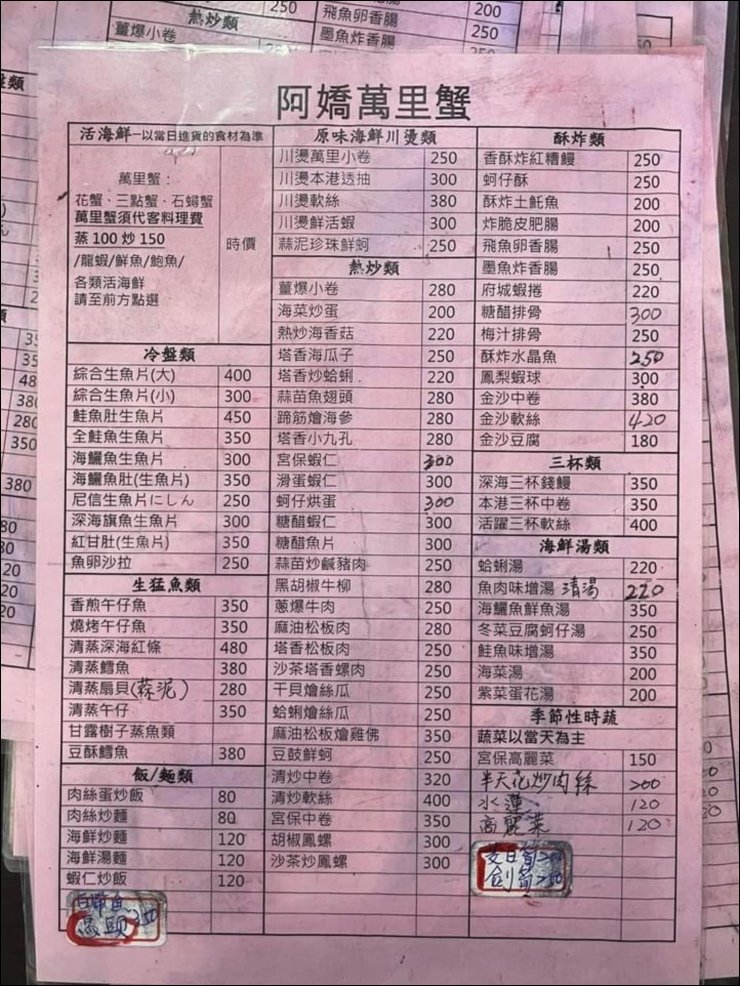 熱炒類
薑爆小卷
250
飛魚卵香腸
200
墨魚炸香腸
250
阿嬌萬里蟹
活海鮮–以當日進貨的食材為準
萬里蟹：
花蟹、三點蟹、石蟳蟹
萬里蟹須代客料理費
蒸100炒150
/龍蝦/鮮魚/鮑魚/
各類活海鮮
請至前方點選
時價
冷盤類
綜合生魚片(大) 400
綜合生魚片(小) 300
鮭魚肚生魚片 450
全鮭魚生魚片 350
海鱺魚生魚片 300
海鱺魚肚(生魚片) 350
尼信生魚片にしん 250
深海旗魚生魚片 300
紅甘肚(生魚片) 350
魚卵沙拉 250
生猛魚類
香煎午仔魚 350
燒烤午仔魚 350
清蒸深海紅條 480
清蒸鱈魚 380
清蒸扇貝(蒜泥) 280
清蒸午仔 350
甘露樹子蒸魚類
豆酥鱈魚 380
飯/麵類
肉絲蛋炒飯 80
肉絲炒麵 80
海鮮炒麵 120
海鮮湯麵 120
蝦仁炒飯 120
白帶魚
350
原味海鮮川燙類
川燙萬里小卷 250
川燙本港透抽 300
川燙軟絲 380
川燙鮮活蝦 300
蒜泥珍珠鮮蚵 250
熱炒類
薑爆小卷 280
海菜炒蛋 200
熱炒海香菇 220
塔香海瓜子 250
塔香炒蛤蜊 220
蒜苗魚翅頭 280
蹄筋燴海參 280
塔香小九孔 280
宮保蝦仁 300
滑蛋蝦仁 300
蚵仔烘蛋 300
糖醋蝦仁 300
糖醋魚片 300
蒜苗炒鹹豬肉 250
黑胡椒牛柳 280
蔥爆牛肉 250
麻油松板肉 280
塔香松板肉 250
沙茶塔香螺肉 250
干貝燴絲瓜 250
蛤蜊燴絲瓜 250
麻油松板燴雞佛 350
豆鼓鮮蚵 250
清炒中卷 320
清炒軟絲 400
宮保中卷 350
胡椒鳳螺 300
沙茶炒鳳螺 300
酥炸類
香酥炸紅糟鰻 250
蚵仔酥 250
酥炸土魠魚 200
炸脆皮肥腸 200
飛魚卵香腸 250
墨魚炸香腸 250
府城蝦捲 220
糖醋排骨 300
梅汁排骨 250
酥炸水晶魚 250
鳳梨蝦球 300
金沙中卷 380
金沙軟絲 420
金沙豆腐 180
三杯類
深海三杯錢鰻 350
本港三杯中卷 350
活躍三杯軟絲 400
海鮮湯類
蛤蜊湯 220
魚肉味增湯 清湯 220
海鱺魚鮮魚湯 350
冬菜豆腐蚵仔湯 250
鮭魚味增湯 350
海菜湯 200
紫菜蛋花湯 200
季節性時蔬
蔬菜以當天為主
宮保高麗菜 150
半天花炒肉絲 200
水蓮 120
高麗菜 120
茭白筍200
劍筍